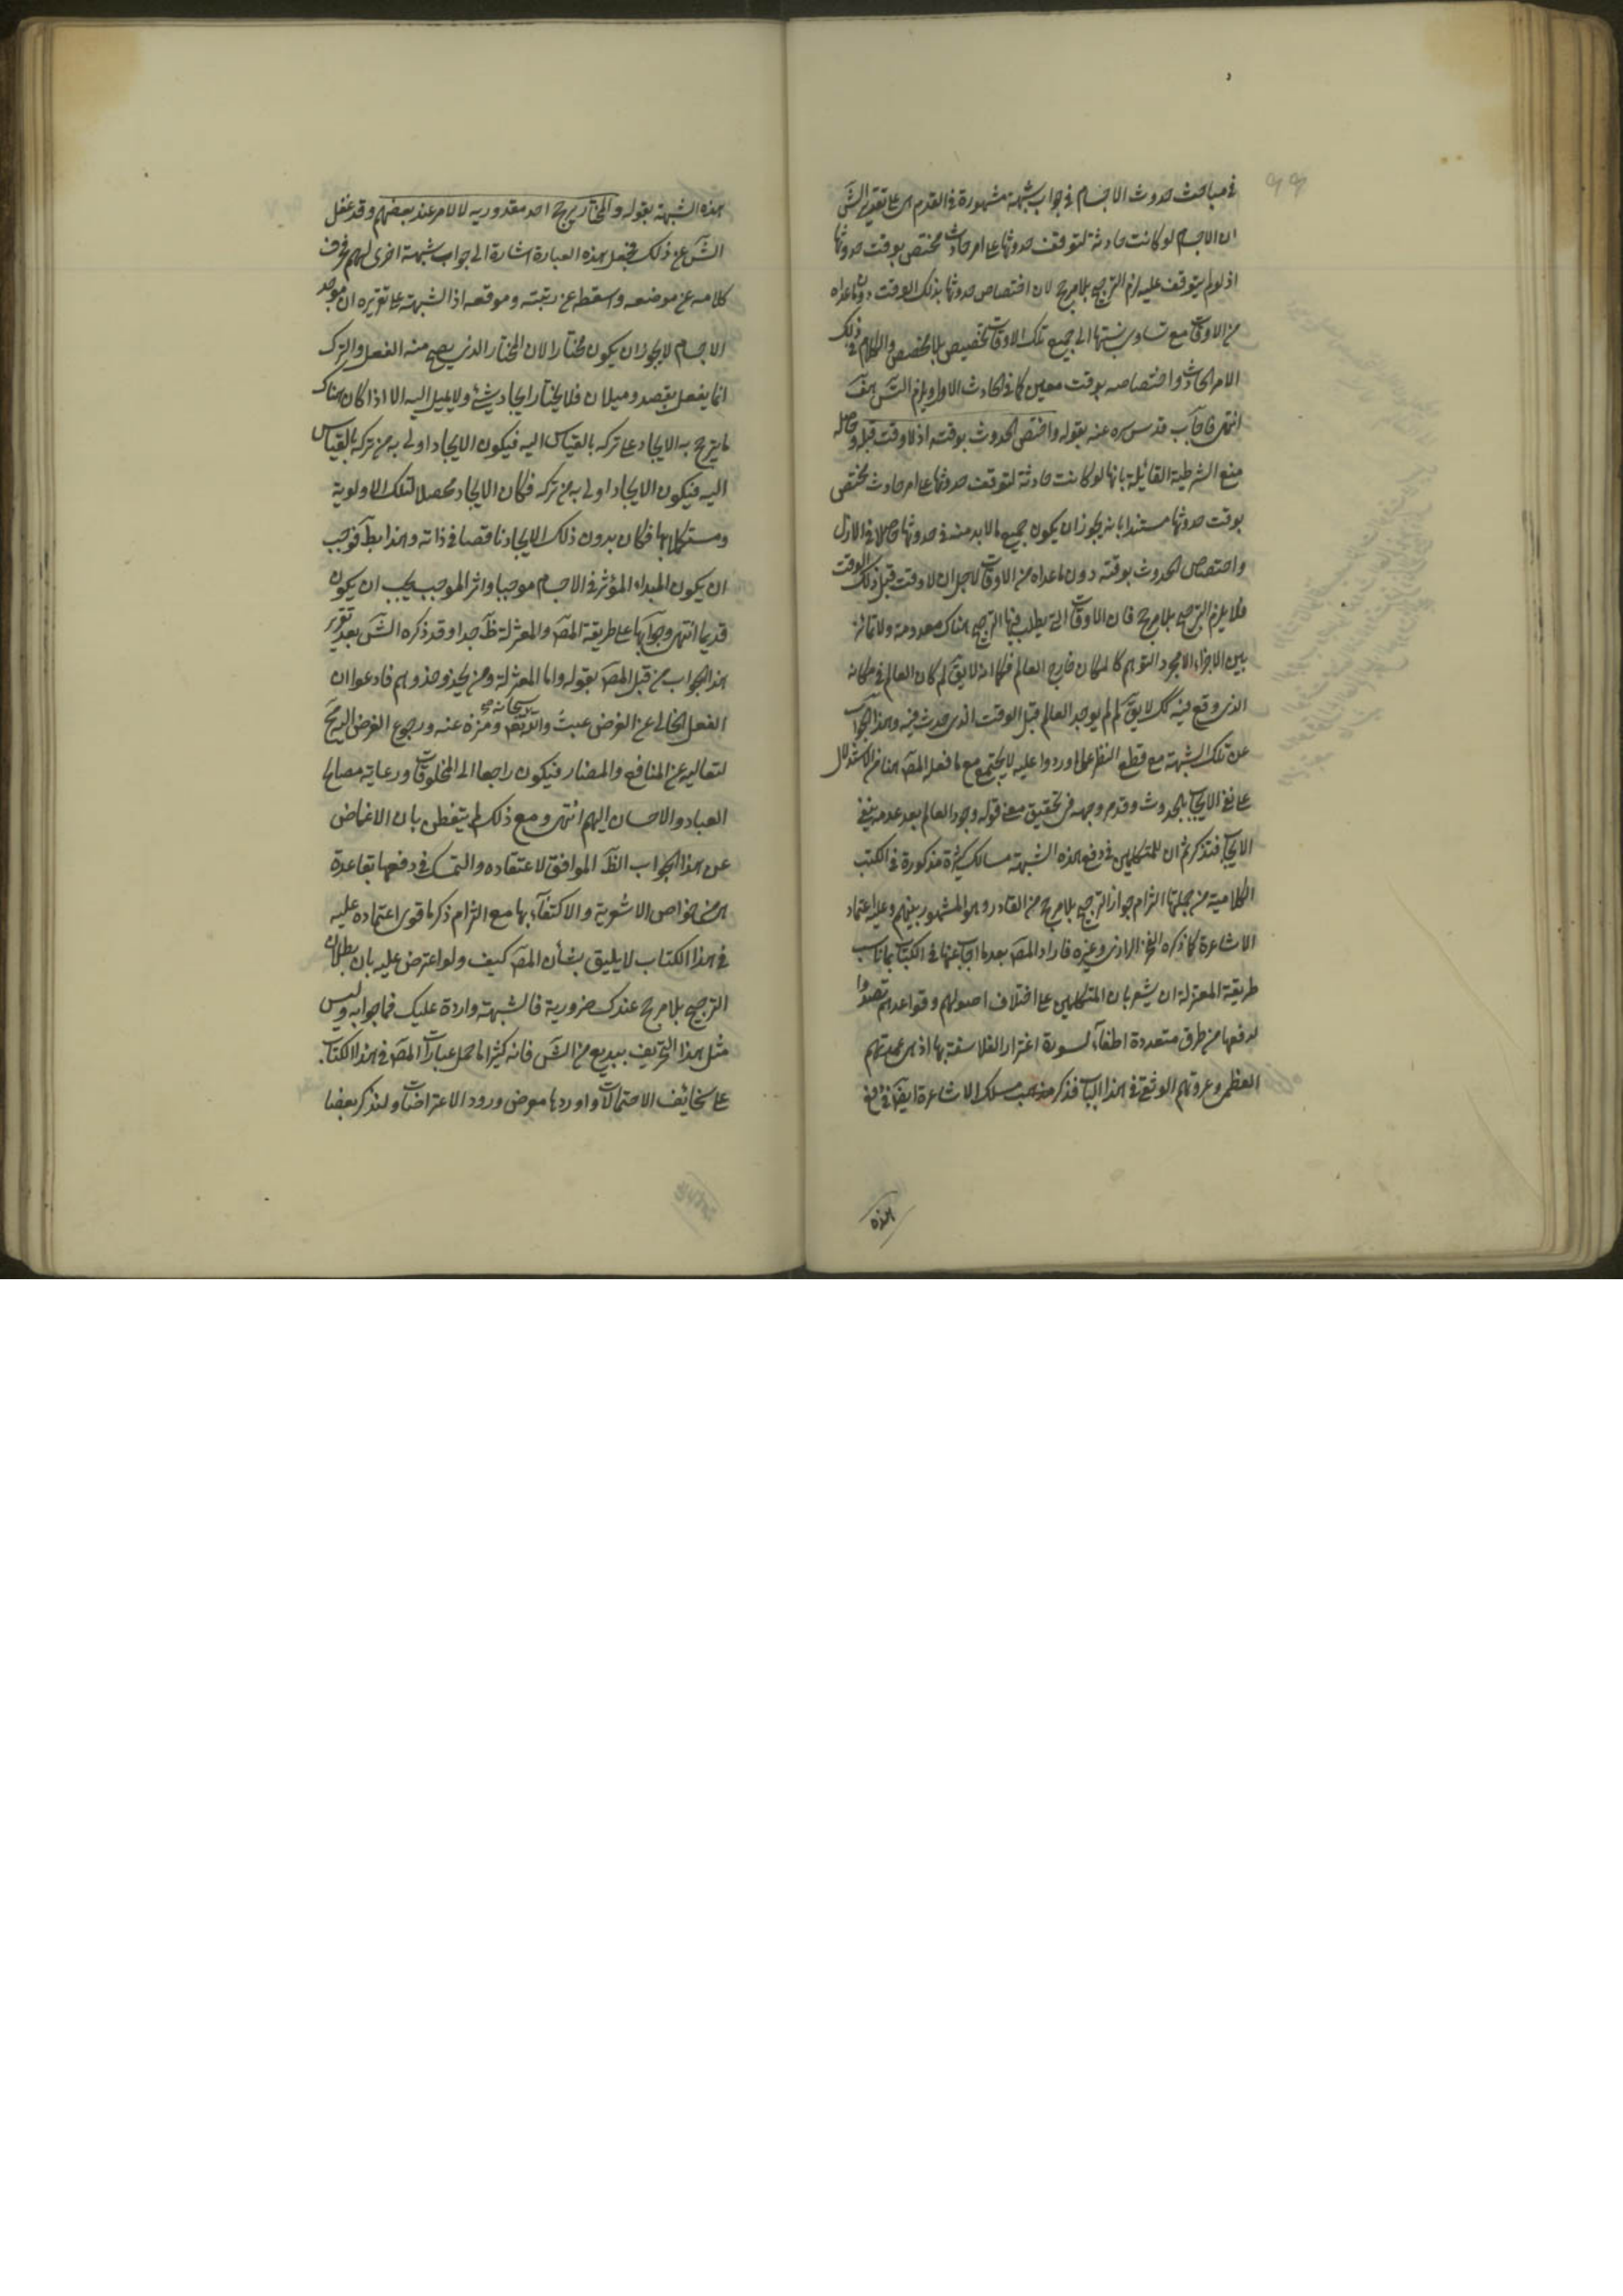 في مباحث حدوث الاجسام في جواب شبهة مشهورة في القدم هي على تقرير الشَ
ان الاجسام لو كانت حادثة لتوقف حدوثها على امر حادث مختص بوقت حدوثها
اذ لو لم يتوقف عليه لزم الترجيح بلا مرجح لان اختصاص حدوثها بذلك الوقت دون ما عداه
من الاوقات مع تساوى نسبتها الى جميع تلك الاوقات تخصيص بلا مخصص والكلام في ذلك
الامر الحادث واختصاصه بوقت معين كما في الحادث الاول ويلزم التسَ هفَ
انتهى فاجاب قدس سره عنه بقوله واختص الحدوث بوقته اذ لا وقت قبله وحاصله
منع الشرطية القائلة بانها لو كانت حادثة لتوقف حدوثها على امر حادث مختص
بوقت حدوثها مستندا بانه يجوز ان يكون جميع ما لا بد منه في حدوثها حاصلا في الازل
واختصاص الحدوث بوقته دون ما عداه من الاوقات لاجل ان لا وقت قبل ذلك الوقت
فلا يلزم الترجيح بلا مرجح فان الاوقات التي يطلب فيها الترجيح هناك معدومة ولا تمايز
بين الاجزاء الا بمجرد التوهم كالمكان خارج العالم فكما انه لا يقَ لم كان العالم في مكانه
الذى وقع فيه كك لا يقَ لم لم يوجد العالم قبل الوقت الذى حدث فيه وهذا الجواب
عن تلك الشبهة مع قطع النظر عما اوردوا عليه لا يجتمع مع ما فعله المصَ هنا من الاستدلال
على نفي الايجاب بالحدوث وقد مر وجهه في تحقيق معنى قوله وجود العالم بعد عدمه ينفي
الايجاب فتذكر ثم ان للمتكلمين في دفع هذه الشبهة مسالك كثيرة مذكورة في الكتب
الكلامية من جملتها التزام جواز الترجيح بلا مرجح من القادر وهو المشهور بينهم وعليه اعتماد
الاشاعرة كما ذكره الفخر الرازى وغيره فاراد المصَ بعد ما اجاب عنها في الكتاب بما ناسب
طريقة المعتزلة ان يشعر بان المتكلمين على اختلاف اصولهم وقواعدهم تصدوا
لدفعها من طرق متعددة اطفآء لسورة اغترار الفلاسفة بها اذ هي عمدتهم
العظمى وعروتهم الوثقى في هذا الباب فذكر مذهب مسلك الاشاعرة ايضَا في دفع
هذه
هذه الشبهة بقوله والمختار يرجح احد مقدوريه لا لامر عند بعضهم وقد غفل
الشَ عن ذلك فجعل هذه العبارة اشارة الى جواب شبهة اخرى لهم فحرف
كلامه عن موضعه واسقطه عن رتبته وموقعه اذ الشبهة على تقريره ان موجد
الاجسام لا يجوز ان يكون مختارا لان المختار الذى يصح منه الفعل والترك
انما يفعل بقصد وميلان فلا يختار ايجاد شئ ولا يميل اليه الا اذا كان هناك
ما يترجح به الايجاد على تركه بالقياس اليه فيكون الايجاد اولى به من تركه بالقياس
اليه فيكون الايجاد اولى به من تركه فكان الايجاد محصلا لتلك الاولوية
ومستكملا بها فكان بدون ذلك الايجاد ناقصا في ذاته وهذا بطَ فوجب
ان يكون المبداء المؤثر في الاجسام موجبا واثر الموجب يجب ان يكون
قديما انتهى وجوابها على طريقة المصَ والمعتزلة ظَ جدا وقد ذكره الشَ بعد تقرير
هذا الجواب من قبل المصَ بقوله واما المعتزلة ومن يحذو حذوهم فادعوا ان
الفعل الخالى عن الغرض عبث واللّه تعَ سبحانه منزه عنه ورجوع الغرض اليه مح
لتعاليه عن المنافع والمضار فيكون راجعا الى المخلوقات ورعاية مصالح
العباد والاحسان اليهم انتهى ومع ذلك لم يتفطن بان الاغماض
عن هذا الجواب الظَ الموافق لاعتقاده والتمسك في دفعها بقاعدة
هي من خواص الاشعرية والاكتفآء بها مع التزام ذكر ما قوى اعتماده عليه
في هذا الكتاب لا يليق بشأن المصَ كيف ولو اعترض عليه بان بطلان
الترجيح بلا مرجح عندك ضرورية فالشبهة واردة عليك فما جوابه وليس
مثل هذا التحريف ببديع من الشَ فانه كثيرا ما حمل عبارات المصَ في هذا الكتاب
على سخائف الاحتمالات واوردها معرض ورود الاعتراضات ولنذكر بعضا